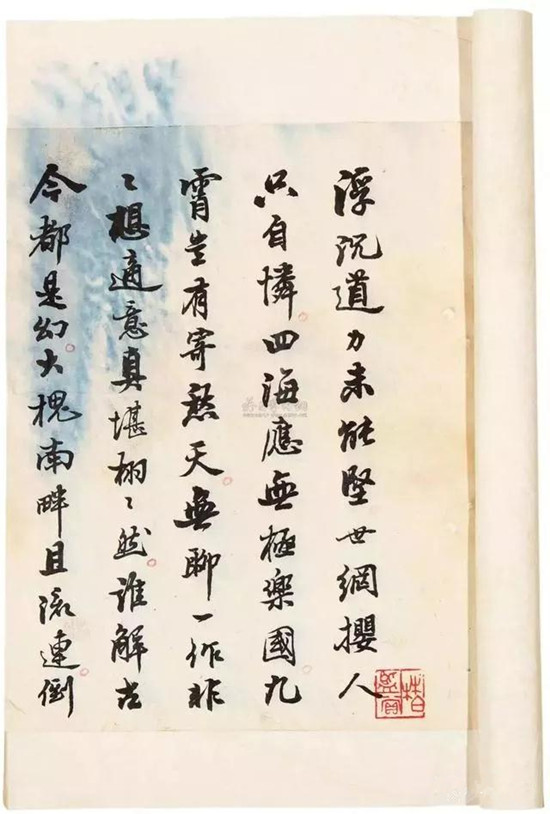 浮沉道力未能堅世網攖人
只自憐四海應無極樂國九
霄豈有寄愁天無聊一作非
〻想適意真堪栩〻然誰解古
今都是幻大槐南畔且流連倒